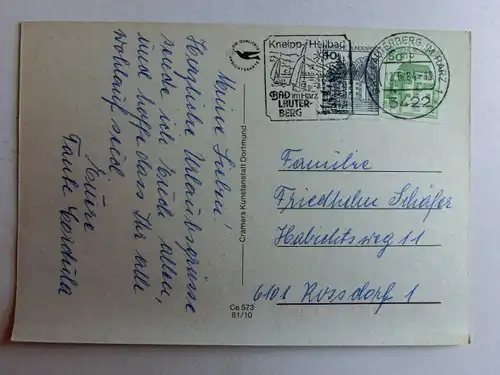 Meine Lieben!
Herzliche Urlaubsgrüsse
sende ich Euch allen,
und hoffe dass Ihr alle
wohlauf seid.
Euere
Tante Cordula
Cramers Kunstanstalt Dortmund
Ce 573
81/10
Kneipp-Heilbad
BAD
im Harz
LAUTER-
BERG
LAUTERBERG IM HARZ 1
3422
Familie
Friedhelm Schäfer
Habichtsweg 11
6101 Rossdorf 1